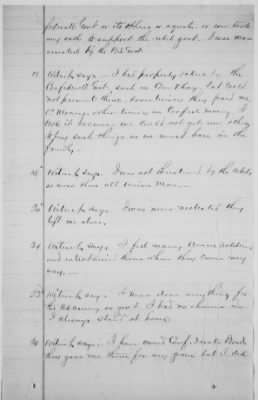 federate Govt or its officers or agents or ever took
any oath to support the rebel govt. I was never
arrested by the U.S. Govt.
18. Witness says — I had property taken by the
Confederate Govt, such as Corn &hay, but could
not prevent them. Sometimes they paid me
C. Money, other times in Confed money. I
took it because we could not get any other
to buy such things as we must have in the
family.—
19" Witness says. I was not threatened by the rebels
no more than all Union Men.—
20" Witness says I was never molested they
left me alone.
21 Witness says I fed many Union Soldiers
and entertained them when they came my
way.—
22" Witness says — I never done anything for
the US army or govt. I had no chance as
I always staid at home.
24 Witness says: I have owned Conf. Bonds
they gave me them for my grain but I did